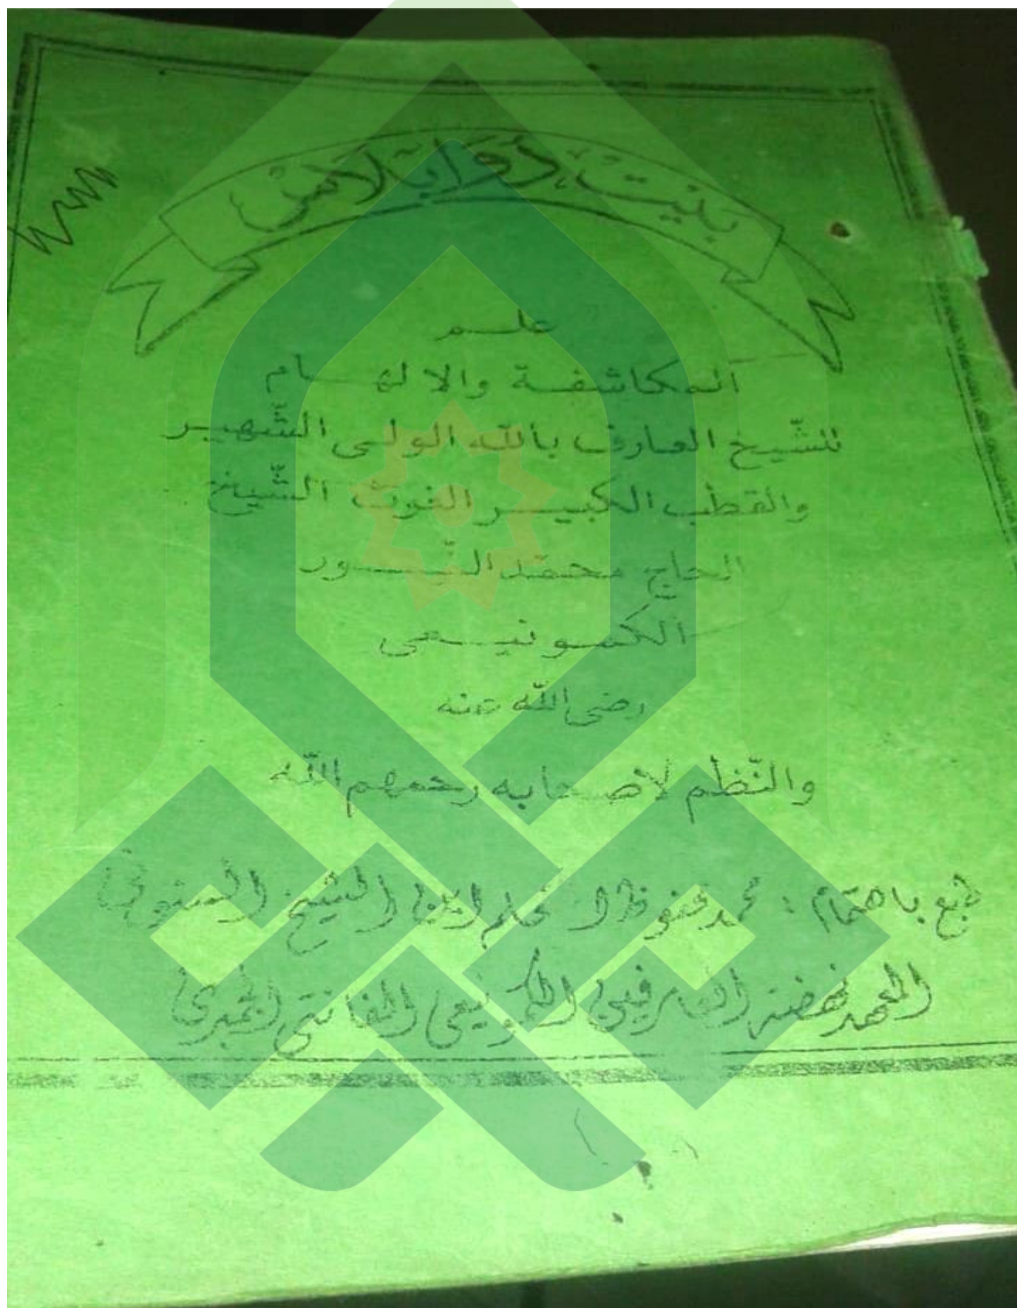 بيت دوابلاس
علم
المكاشفة والالهام
للشّيخ العارف بالله الولى الشّهير
والقطب الكبير الغوث الشّيخ
الحاج محمّد النّور
الكمونيعى
رضى الله عنه
والنّظم لاصحابه رحمهم الله
طبع باهتمام : محمد محفوظ ابن الشيخ
المعهد نهضة العارفين الكمونيعى الجمبرى